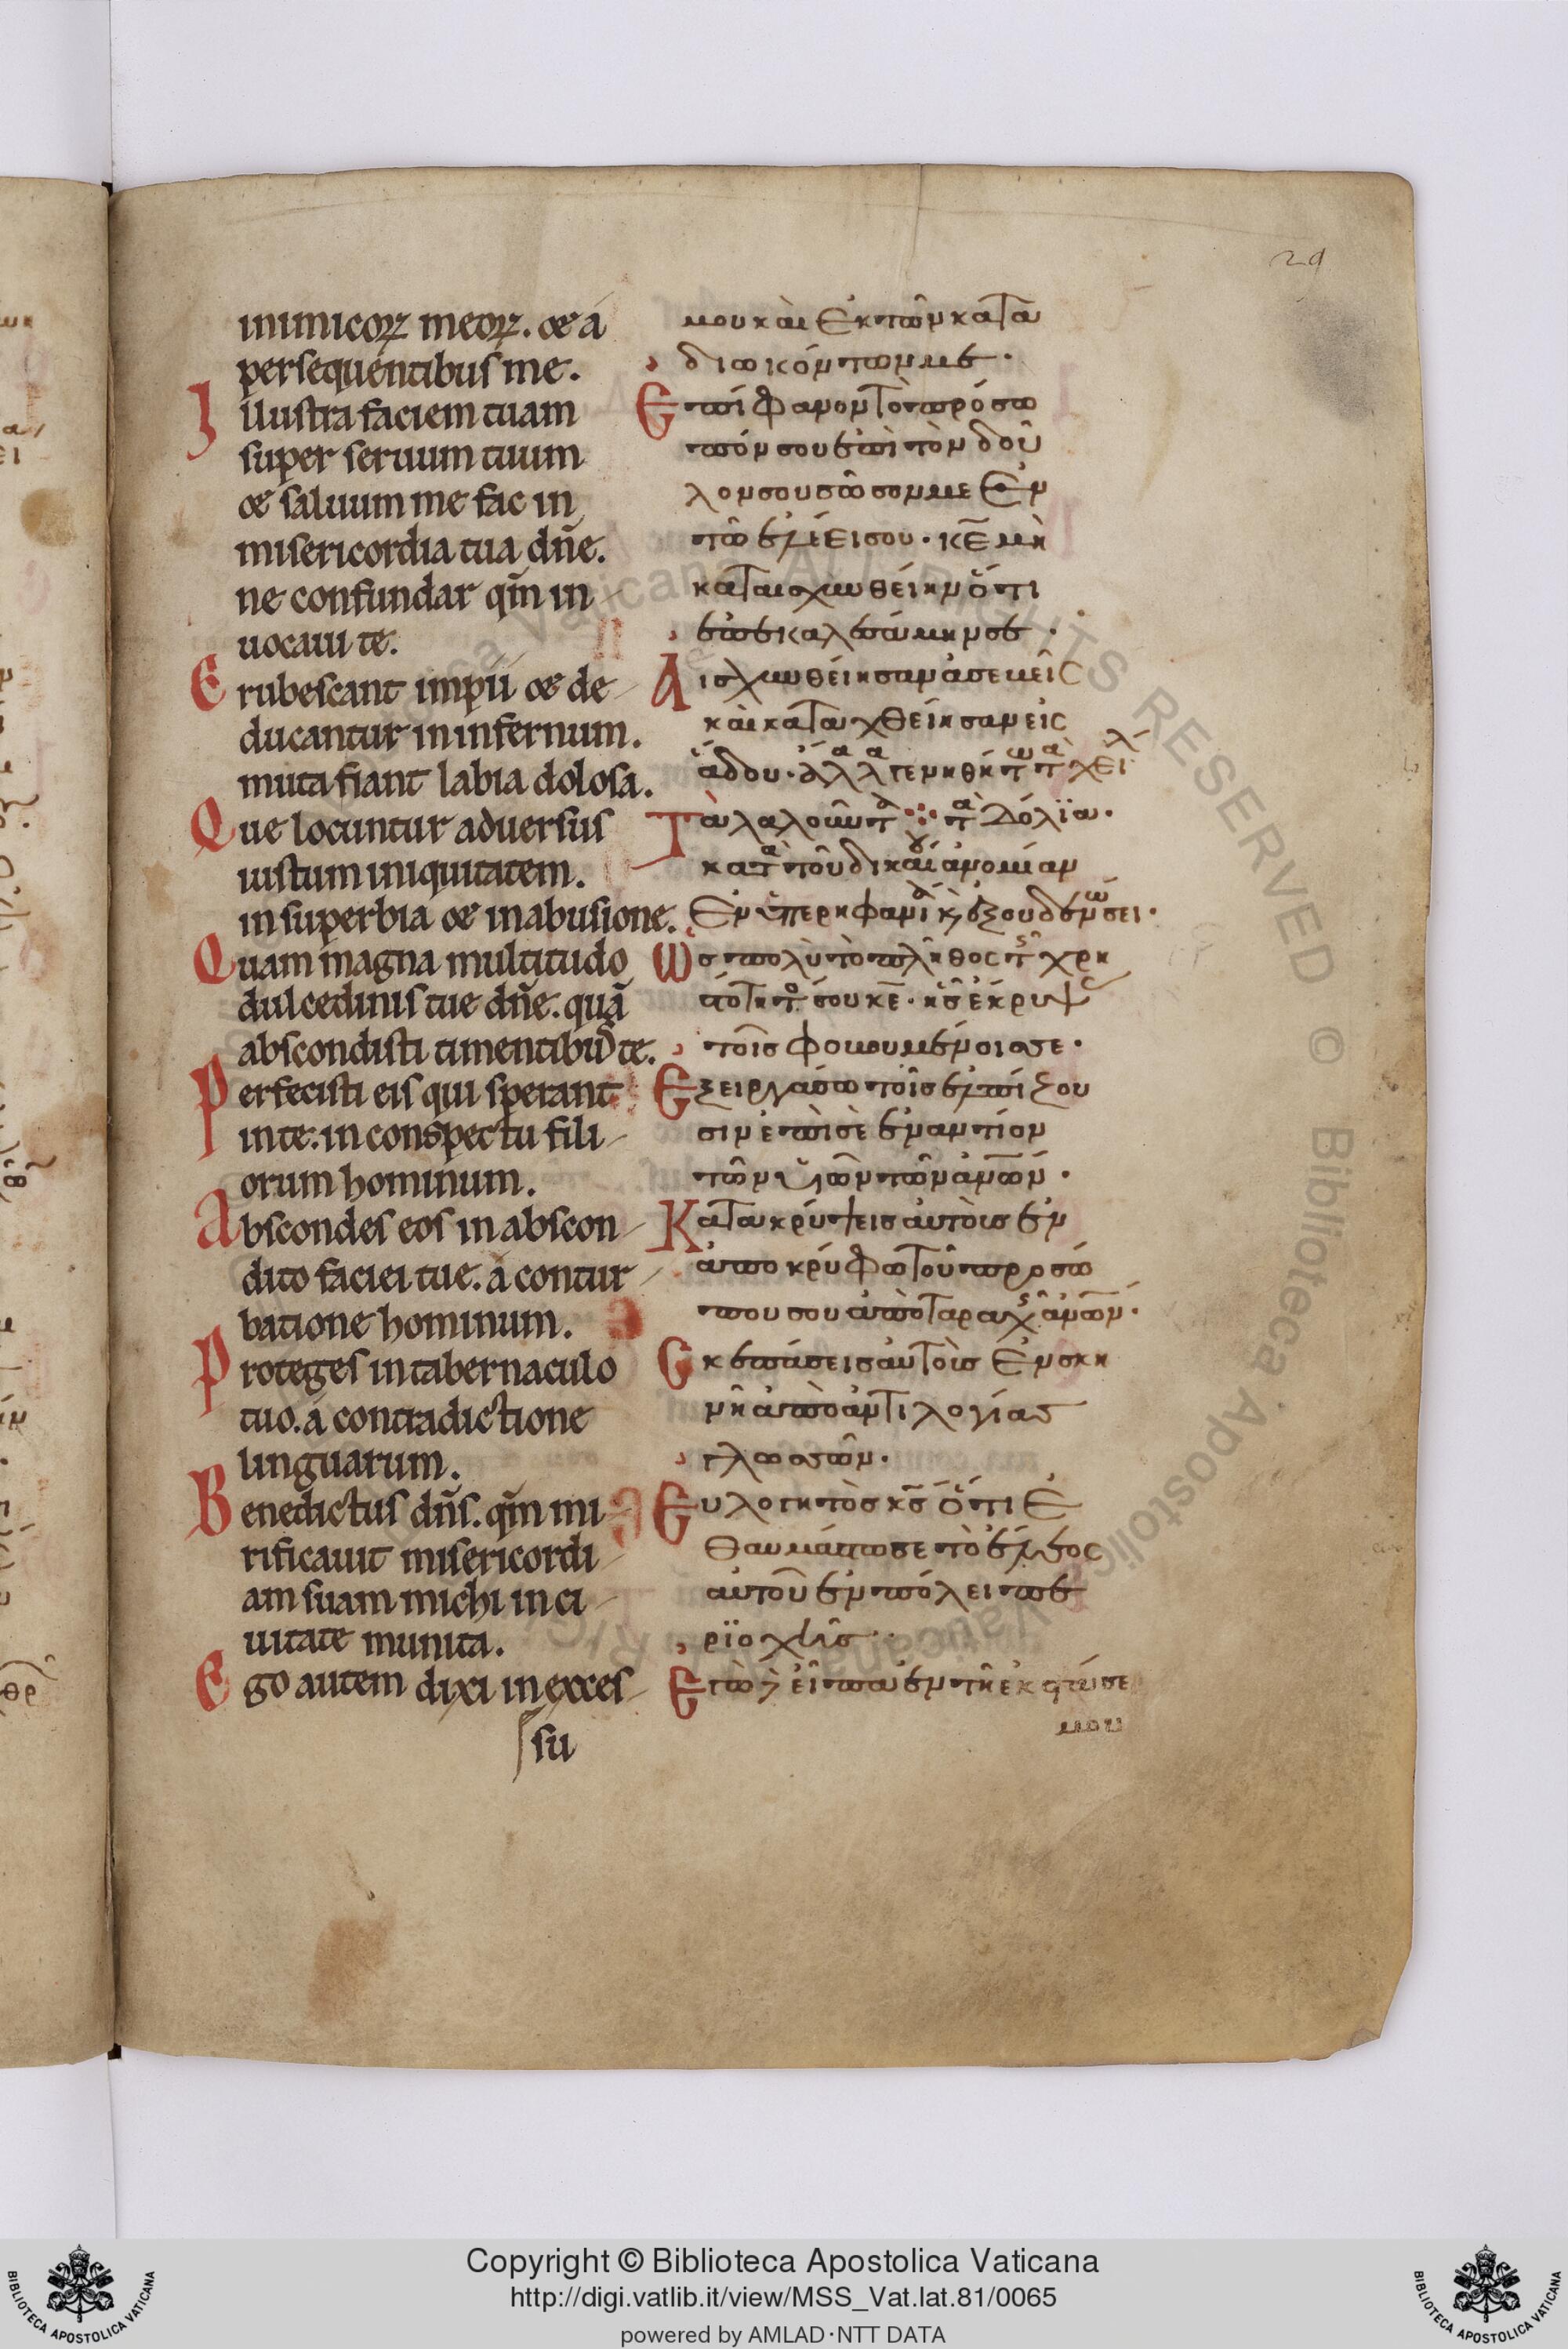 29
inimicoꝝ meoꝝ. & á
persequéntibus me.
Jllustra faciem tuam
super seruum tuum
& saluum me fac in
misericordia tua dñe.
ne confundar qm̄ in
uocaui te.
Erubescant impíí & de
ducantur in infernum.
muta fiant labia dolosa.
Que locuntur aduersus
iustum iniquitatem.
in superbia & in abusione.
Quam magna multitudo
dulcedinis tue dñe. quā
abscondisti timentibus te.
Perfecisti eis qui sperant
in te. in conspectu fili
orum hominum.
Abscondes eos in abscon
dito faciei tue. á contur
batione hominum.
Proteges in tabernaculo
tuo. á contradictione
linguarum.
Benedictus dñs. qm̄ mi
rificauit misericordi
am suam michi in ci
uitate munita.
Ego autem dixi in exces
su
μου καὶ ἐκ τῶν κατα
διωκόντων με.
Επίφανον τὸ πρόσω
πόν σου ἐπὶ τὸν δοῦ
λον σου σῶσον με ἐν
τῶ ἐλέει σου. κ̄ε μὴ
καταισχυνθείην ὅτι
ἐπεκαλεσάμην σε.
Αισχυνθείησαν ἀσεβεῖς
καὶ καταχθείησαν εἰς
ἅδου.
Τὰ λαλοῦντα τὰ δόλϊα.
κατὰ τοῦ δικαίου ἀνομίαν
Ωσ πολὺ τὸ πλῆθος τῆς χρη
τοῖσ φοβουμένοισ σε.
Εξειργάσω τοῖσ ἐλπίζου
σιν ἐπὶ σὲ ἐναντίον
τῶν υἱῶν τῶν ἀν̄ων.
Κατακρύψεισ αὐτοὺσ ἐν
ἀποκρύφω τοῦ προσώ
που σου ἀπὸ ταραχῆς ἀν̄ων.
Σκεπάσεισ αὐτοὺσ ἐν σκη
νῆ ἀπὸ ἀντιλογίασ
γλωσσῶν.
Ευλογητὸσ κ̄σ ὅτι ἐ
θαυμάστωσε τὸ ἔλεος
αὐτοῦ ἐν πόλει πε
ριοχῆσ.
Εγὼ δὲ εἶπα ἐν τῆ ἐκστάσει
μου
Copyright © Biblioteca Apostolica Vaticana
http://digi.vatlib.it/view/MSS_Vat.lat.81/0065
powered by AMLAD·NTT DATA